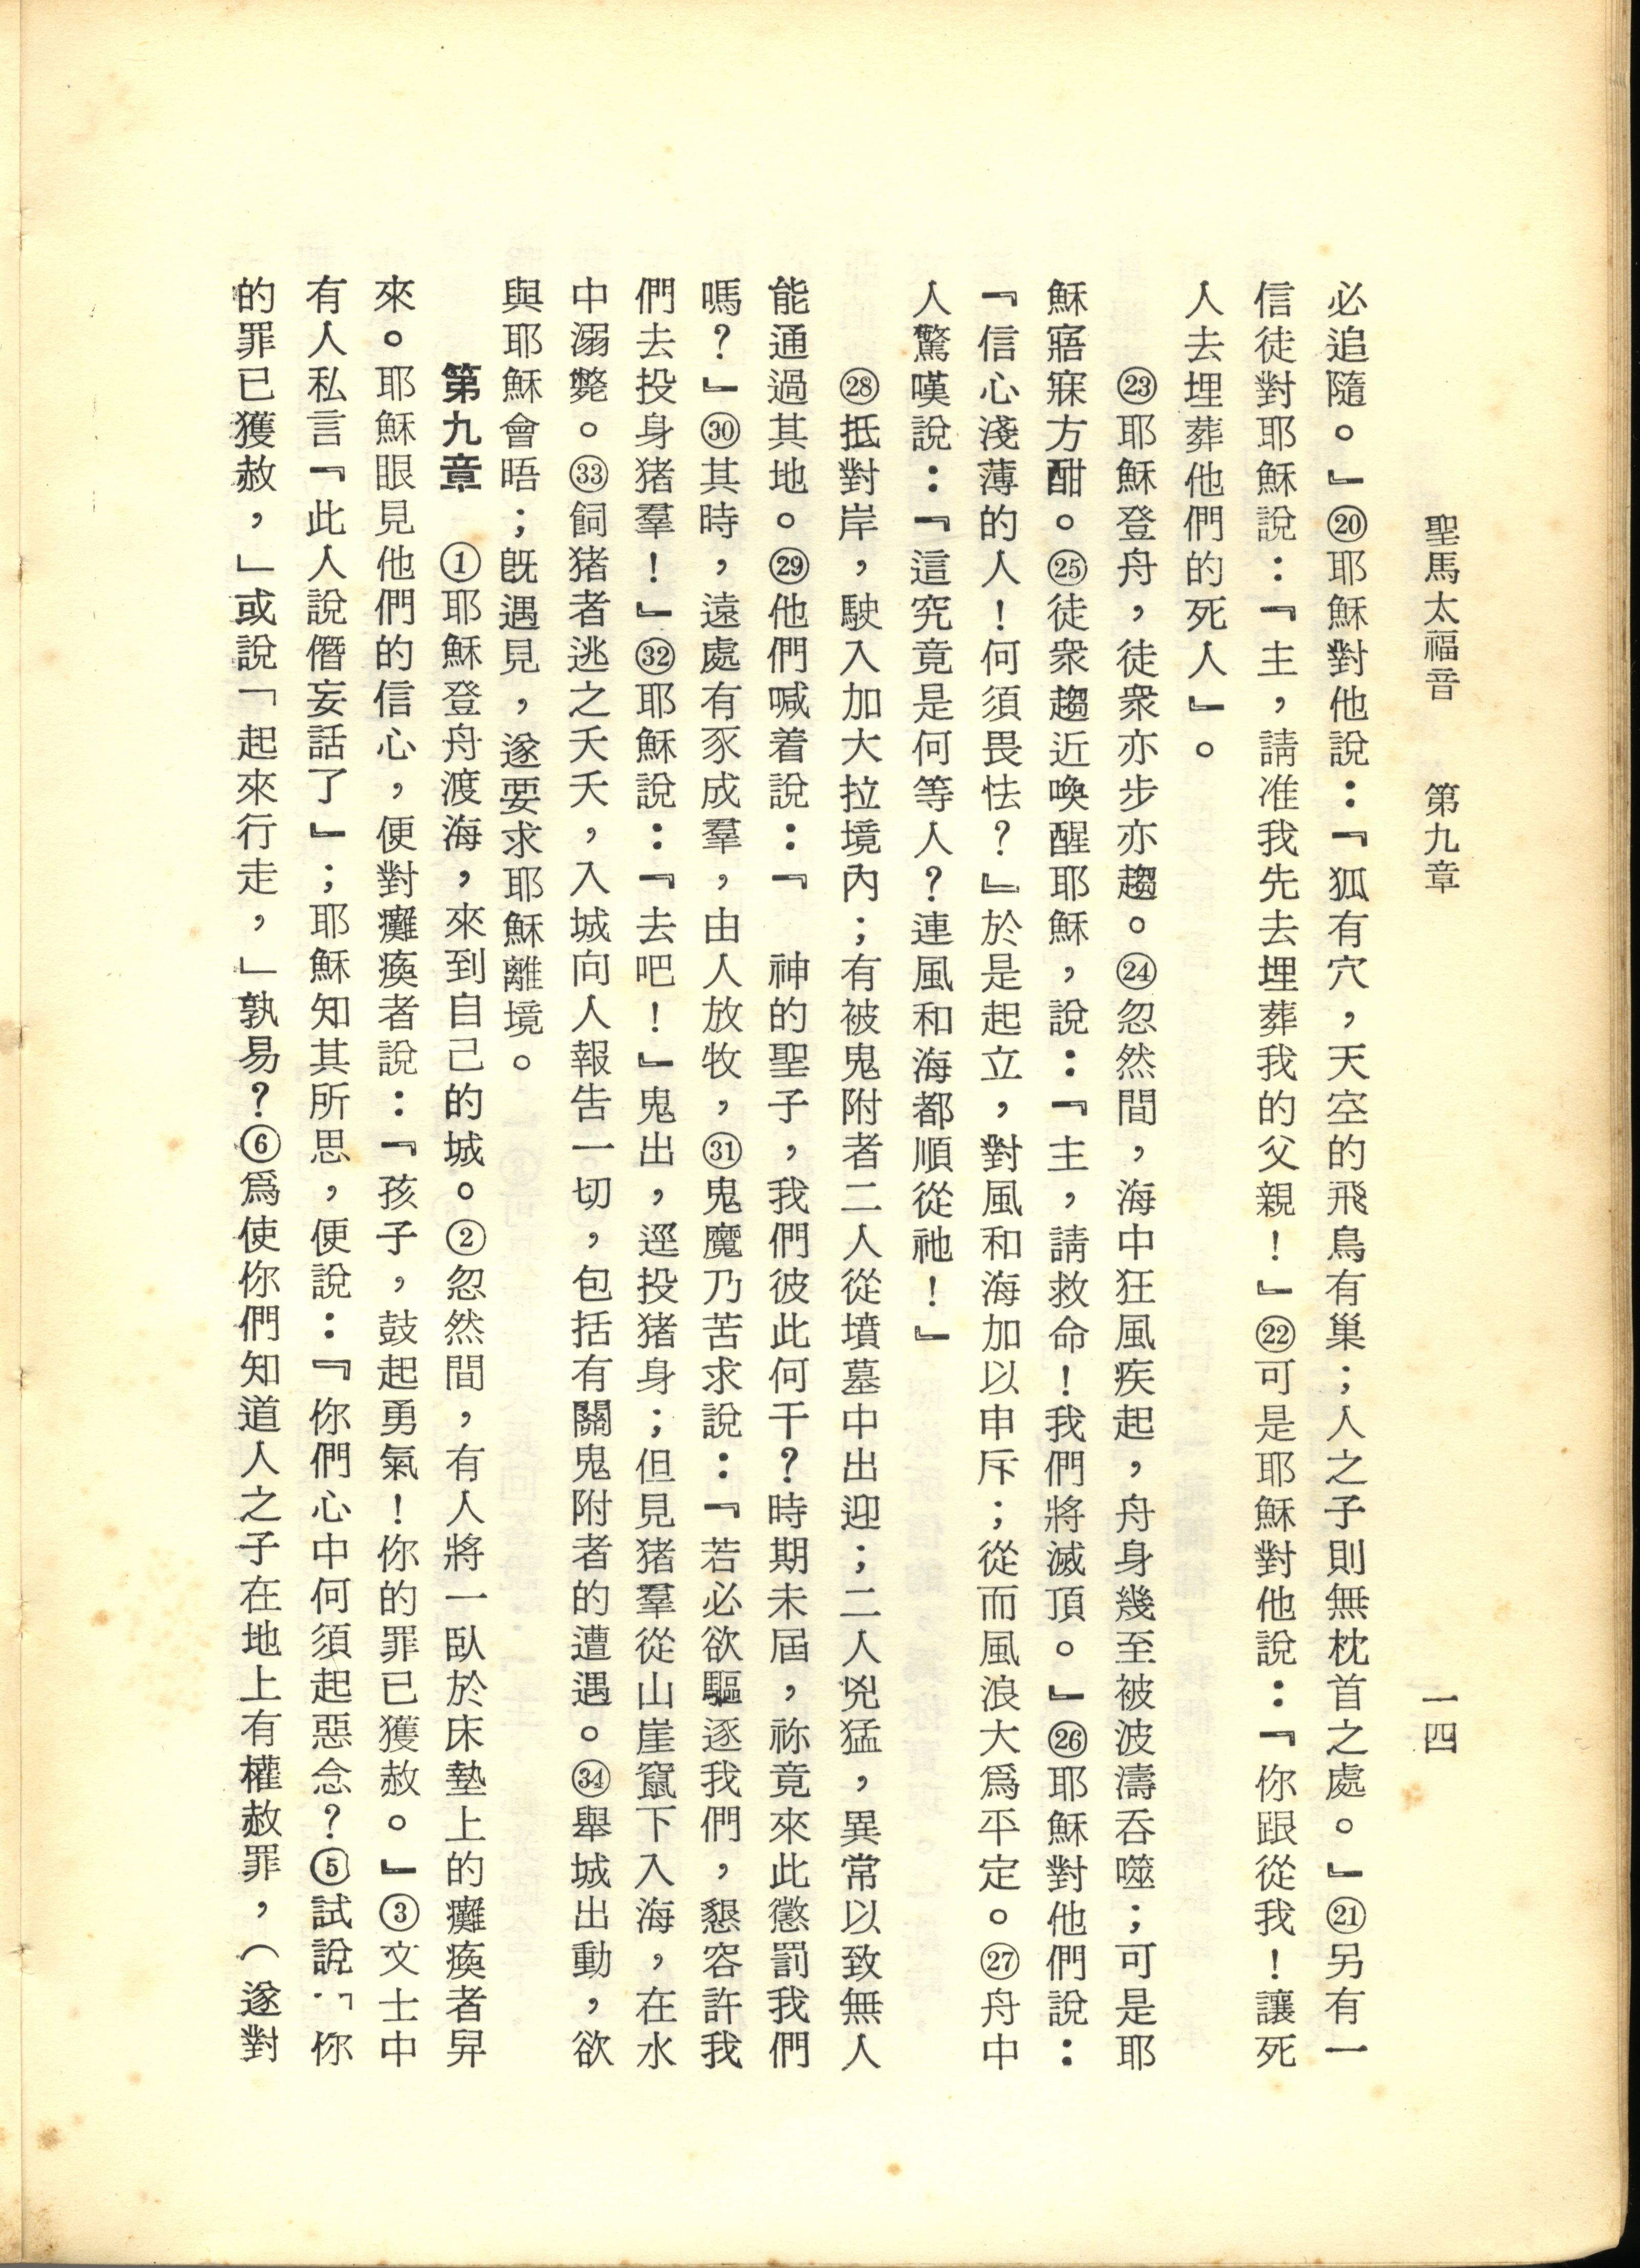 聖馬太福音　第九章　一四
必追隨。』⑳耶穌對他說：『狐有穴，天空的飛鳥有巢；人之子則無枕首之處。』㉑另有一
信徒對耶穌說：『主，請准我先去埋葬我的父親！』㉒可是耶穌對他說：『你跟從我！讓死
人去埋葬他們的死人』。
㉓耶穌登舟，徒衆亦步亦趨。㉔忽然間，海中狂風疾起，舟身幾至被波濤吞噬；可是耶
穌寤寐方酣。㉕徒衆趨近喚醒耶穌，說：『主，請救命！我們將滅頂。』㉖耶穌對他們說：
『信心淺薄的人！何須畏怯？』於是起立，對風和海加以申斥；從而風浪大爲平定。㉗舟中
人驚嘆說：『這究竟是何等人？連風和海都順從祂！』
㉘抵對岸，駛入加大拉境內；有被鬼附者二人從墳墓中出迎；二人兇猛，異常以致無人
能通過其地。㉙他們喊着說：『　神的聖子，我們彼此何干？時期未屆，祢竟來此懲罰我們
嗎？』㉚其時，遠處有豕成羣，由人放牧，㉛鬼魔乃苦求說：『若必欲驅逐我們，懇容許我
們去投身猪羣！』㉜耶穌說：『去吧！』鬼出，逕投猪身；但見猪羣從山崖竄下入海，在水
中溺斃。㉝飼猪者逃之夭夭，入城向人報告一切，包括有關鬼附者的遭遇。㉞舉城出動，欲
與耶穌會晤；旣遇見，遂要求耶穌離境。
第九章　①耶穌登舟渡海，來到自己的城。②忽然間，有人將一臥於床墊上的癱瘓者舁
來。耶穌眼見他們的信心，便對癱瘓者說：『孩子，鼓起勇氣！你的罪已獲赦。』③文士中
有人私言『此人說僭妄話了』；耶穌知其所思，便說：『你們心中何須起惡念？⑤試說：「你
的罪已獲赦，」或說「起來行走，」孰易？⑥爲使你們知道人之子在地上有權赦罪，（遂對